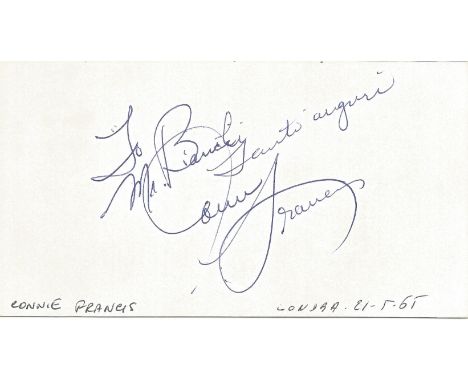 To
Mr. Bianchi
Tanti auguri
Connie Francis
CONNIE FRANCIS
LONDRA. 21-5-65